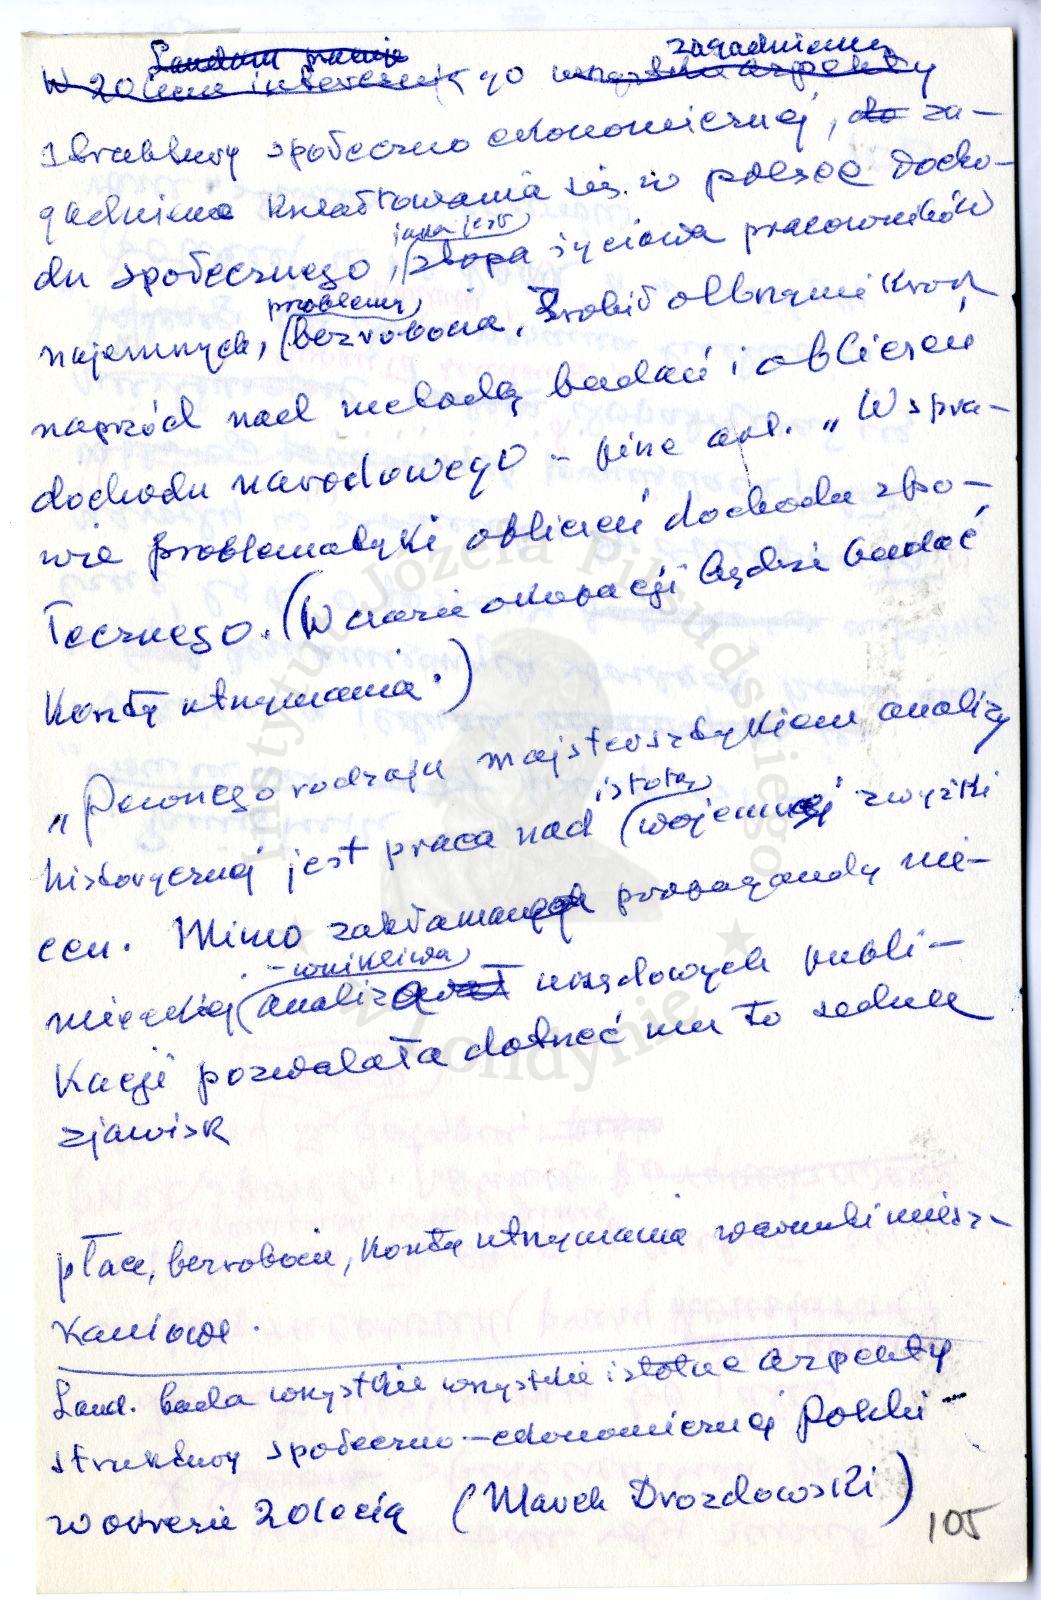 Landau pracuje zagadnienia
W 20 leciu interesują go wszystkie aspekty
struktury społeczno ekonomicznej, do za-
gadnienia kształtowania się w polsce docho-
du społecznego, jaka jest stopa życiowa pracowników
najemnych, problemy bezrobocia. Zrobił olbrzymi krok
naprzód nad metodą badań i obliczeń
dochodu narodowego – pisze art. „W spra-
wie problematyki obliczeń dochodu spo-
łecznego. (W czasie okupacji będzie badać
koszty utrzymania.)
„Pewnego rodzaju majstersztykiem analizy
historycznej jest praca nad istotą wojennej zwyżki
cen. Mimo zakłamanej propagandy nie-
mieckiej wnikliwa analiza urzędowych publi-
kacji pozwalała dotrzeć mu to sedna
zjawisk
płace, bezrobocie, koszty utrzymania warunki miesz-
kaniowe.
Land. bada wszystkie wszystkie istotne aspekty
struktury społeczno-ekonomicznej Polski -
w okresie 20lecia (Marek Drozdowski)
105
Instytut Józefa Piłsudskiego
w Londynie